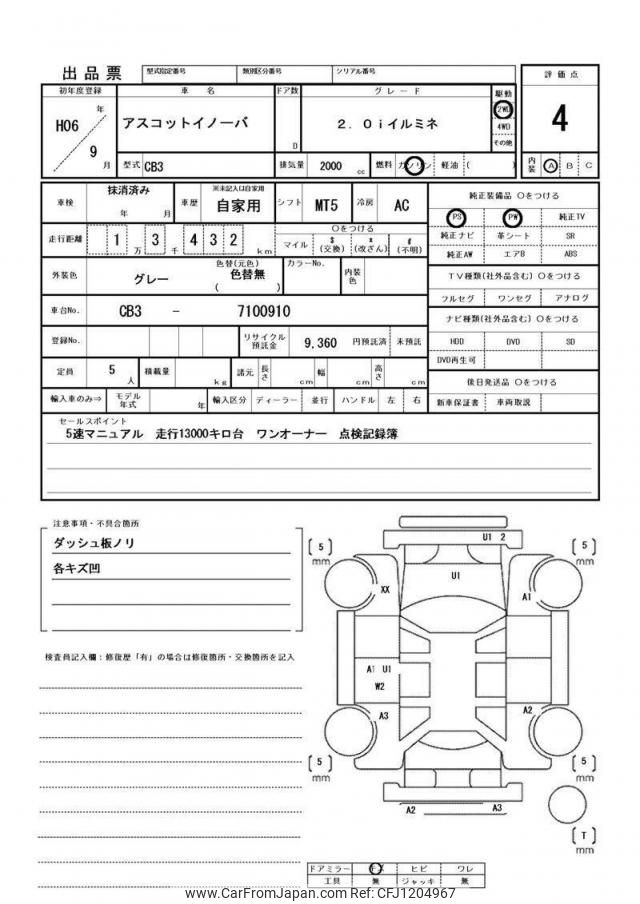 出品票 型式指定番号 類別区分番号 シリアル番号
評価点
初年度登録 車名 ドア数 グレード 駆動
H06 年 9 月
アスコットイノーバ D 2.0iイルミネ
2WD
4WD
その他
4
型式 CB3 排気量 2000 cc 燃料 ガソリン 軽油 ( )
内装 A B C
車検 抹消済み 年 月 車歴 ※未記入は自家用 自家用 シフト MT5 冷房 AC
純正装備品 〇をつける
PS PW 純正TV
純正ナビ 革シート SR
純正AW エアB ABS
走行距離 1 万 3 千 4 3 2 km
〇をつける
マイル $ (交換) * (改ざん) # (不明)
外装色 グレー 色替(元色) 色替無 ( ) カラーNo. 内装色
TV種類(社外品含む) 〇をつける
フルセグ ワンセグ アナログ
車台No. CB3 - 7100910
ナビ種類(社外品含む) 〇をつける
登録No. リサイクル預託金 9,360 円預託済 未預託
HDD DVD SD
DVD再生可
定員 5 人 積載量 kg 諸元 長さ cm 幅 cm 高さ cm
後日発送品 〇をつける
輸入車のみ⇒ モデル年式 年 輸入区分 ディーラー 並行 ハンドル 左 右
新車保証書 車両取説
セールスポイント
5速マニュアル 走行13000キロ台 ワンオーナー 点検記録簿
注意事項・不具合箇所
ダッシュ板ノリ
各キズ凹
検査員記入欄：修復歴「有」の場合は修復箇所・交換箇所を記入
U1 2
5 mm
5 mm
U1
XX
A1
A1 U1
W2
A3
A2
5 mm
5 mm
A2
A3
T mm
ドアミラー ヒビ ワレ
工具 無 ジャッキ 無
www.CarFromJapan.com Ref: CFJ1204967